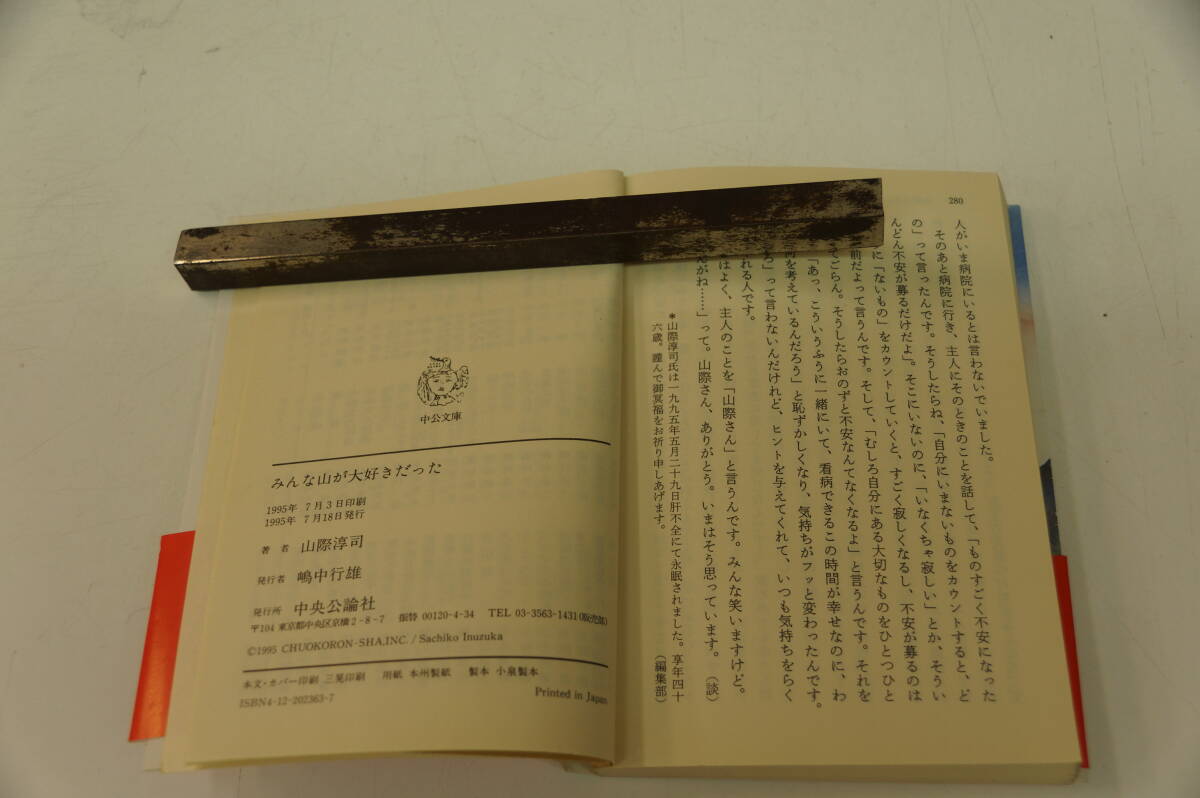 280
人がいま病院にいるとは言わないでいました。
そのあと病院に行き、主人にそのときのことを話して、「ものすごく不安になった
の」って言ったんです。そうしたらね、「自分にいまないものをカウントすると、ど
んどん不安が募るだけだよ」。そこにいないのに、「いなくちゃ寂しい」とか、そうい
に「ないもの」をカウントしていくと、すごく寂しくなるし、不安が募るのは
前だよって言うんです。そして、「むしろ自分にある大切なものをひとつひと
てごらん。そうしたらおのずと不安なんてなくなるよ」と言うんです。それを
「あっ、こういうふうに一緒にいて、看病できるこの時間が幸せなのに、わ
を考えているんだろう」と恥ずかしくなり、気持ちがフッと変わったんです。
」って言わないんだけれど、ヒントを与えてくれて、いつも気持ちをらく
れる人です。
はよく、主人のことを「山際さん」と言うんです。みんな笑いますけど。
がね……」って。山際さん、ありがとう。いまはそう思っています。（談）
＊山際淳司氏は一九九五年五月二十九日肝不全にて永眠されました。享年四十
六歳。謹んで御冥福をお祈り申しあげます。（編集部）
中公文庫
みんな山が大好きだった
1995年 7月3日印刷
1995年 7月18日発行
著者 山際淳司
発行者 嶋中行雄
発行所 中央公論社
〒104 東京都中央区京橋2-8-7 振替 00120-4-34 TEL 03-3563-1431(販売部)
©1995 CHUOKORON-SHA,INC. / Sachiko Inuzuka
本文・カバー印刷 三晃印刷 用紙 本州製紙 製本 小泉製本
ISBN4-12-202363-7
Printed in Japan